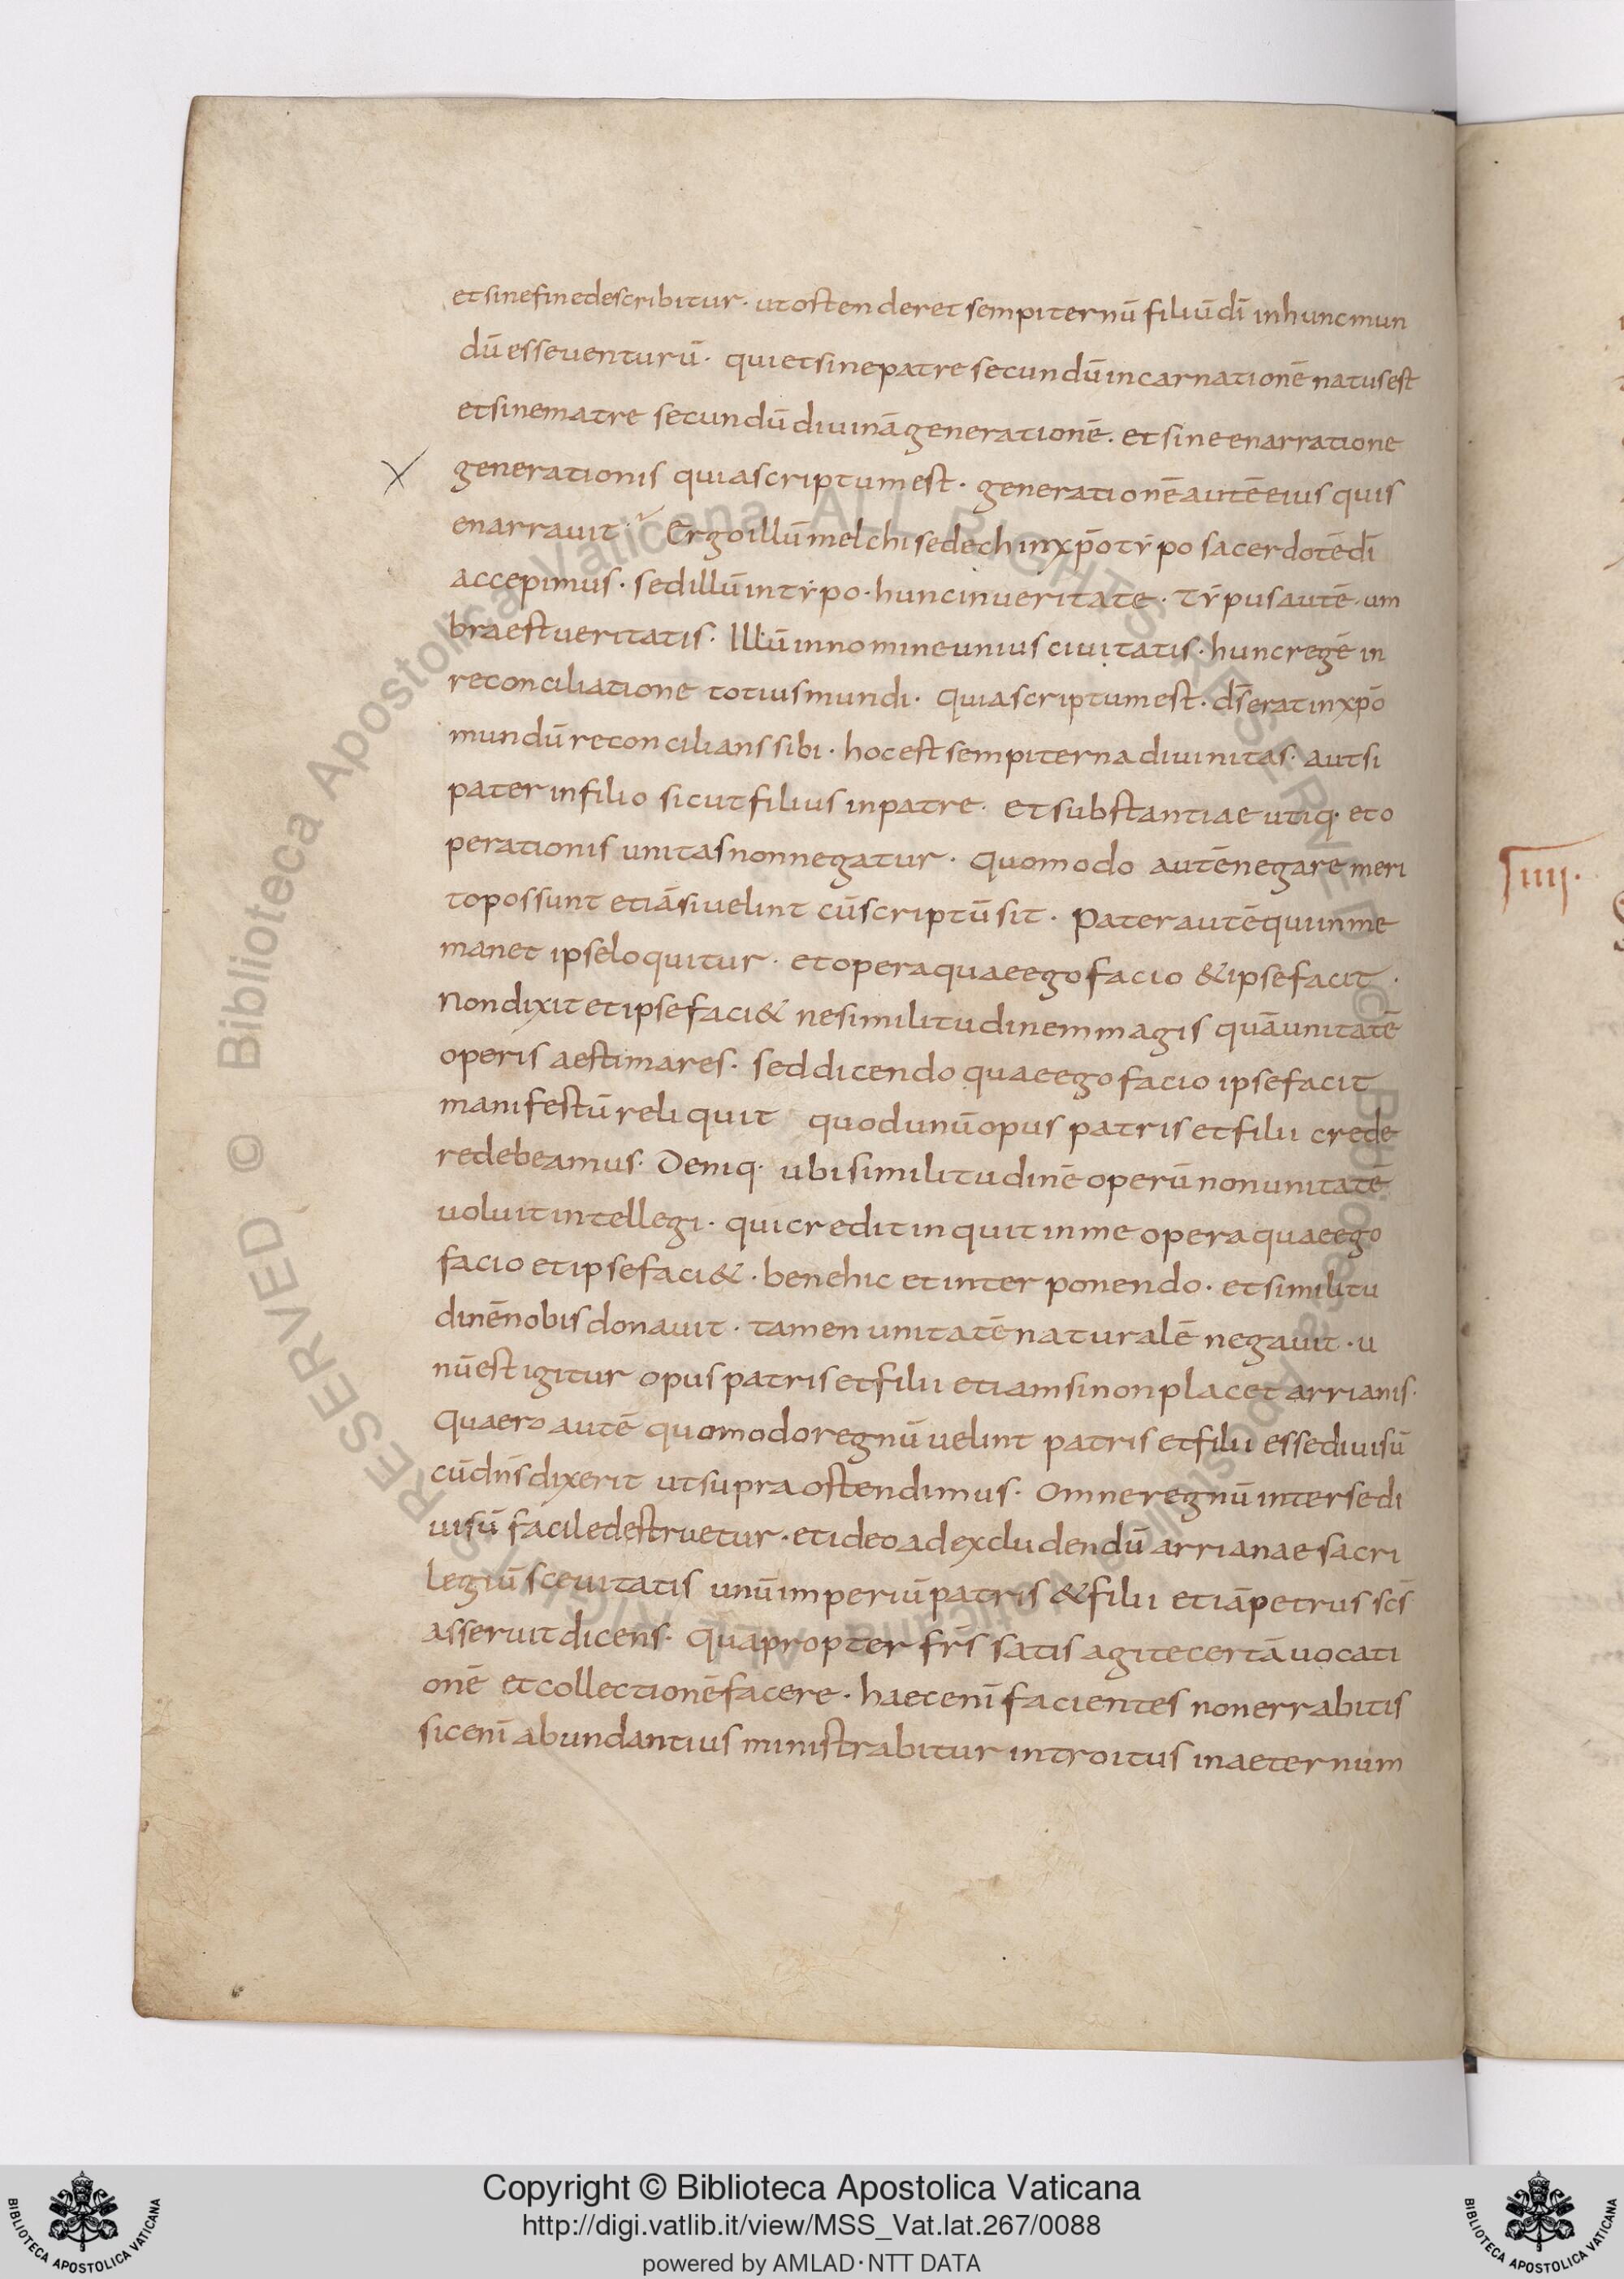 et sine fine describitur · ut ostenderet sempiternū filiū dī in hunc mun
dū esse uenturū · qui et sine patre secundū incarnationē natus est
et sine matre secundū diuinā generationē · et sine enarratione
generationis quia scriptum est · generationē autē eius quis
enarrauit · Ergo illū melchisedech in xp̄o tẏpo sacerdotē dī
accepimus · sed illū in tẏpo · hunc in ueritate · Tẏpus autē · um
bra est ueritatis · Illū in nomine unius ciuitatis · hunc regē in
reconciliatione totius mundi · Quia scriptum est · ds̄ erat in xp̄o
mundū reconcilians sibi · hoc est sempiterna diuinitas · aut si
pater in filio sicut filius in patre · et substantiae utiq· et o
perationis unitas non negatur · Quomodo autē negare meri
to possunt etiā si uelint cū scriptū sit · Pater autē qui in me
manet ipse loquitur · et opera quae ego facio & ipse facit ·
Non dixit et ipse faci& ne similitudinem magis quā unitatē
operis aestimares · sed dicendo quae ego facio ipse facit
manifestū reliquit quod unū opus patris et filii crede
re debeamus · Deniq· ubi similitudinē operū non unitatē
uoluit intellegi · qui credit inquit in me opera quae ego
facio et ipse faci& · bene hic et interponendo · et similitu
dinē nobis donauit · tamen unitatē naturalē negauit · u
nū est igitur opus patris et filii etiam si non placet arrianis ·
Quaero autē quomodo regnū uelint patris et filii esse diuisū
cū dns̄ dixerit ut supra ostendimus · Omne regnū inter se di
uisū facile destruetur · et ideo ad excludendū arrianae sacri
legiū sceuitatis unū imperiū patris & filii etiā petrus scs̄
asseruit dicens · Quapropter frs̄ satis agite certā uocati
onē et collectionē facere · haec enī facientes non errabitis
sic enī abundantius ministrabitur introitus in aeternum
IIII·
Biblioteca Apostolica Vaticana ALL RIGHTS RESERVED ©
Copyright © Biblioteca Apostolica Vaticana
http://digi.vatlib.it/view/MSS_Vat.lat.267/0088
powered by AMLAD·NTT DATA
BIBLIOTECA APOSTOLICA VATICANA
BIBLIOTECA APOSTOLICA VATICANA